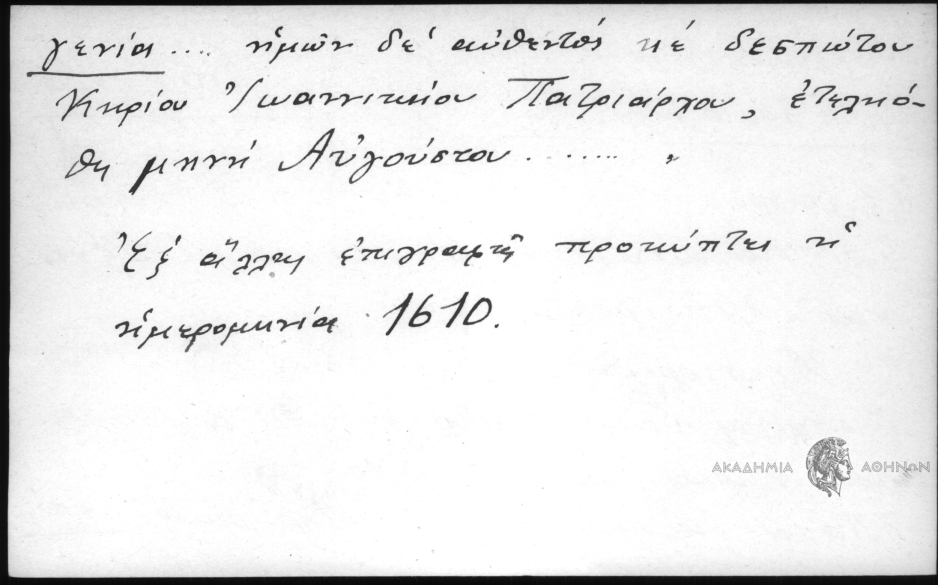 γενία .... ἡμῶν δέ αὐθεντός κέ δεσπώτου
Κηρίου Ἰωαννικίου Πατριάρχου, ἐτεληό-
θη μηνή Αὐγούστου ....... „
Ἐξ ἄλλης ἐπιγραφῆς προκύπτει ἡ
ἡμερομηνία 1610.
ΑΚΑΔΗΜΙΑ ΑΘΗΝΩΝ